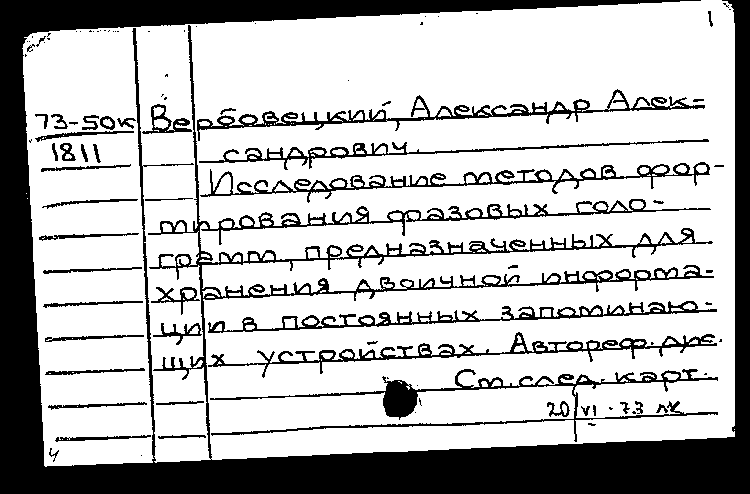 1
73-50к Вербовецкий, Александр Алек-
1811 сандрович.
Исследование методов фор-
мирования фазовых голо-
грамм, предназначенных для
хранения двоичной информа-
ции в постоянных запоминаю-
щих устройствах. Автореф. дис.
См. след. карт.
20/VI-73 лк
4